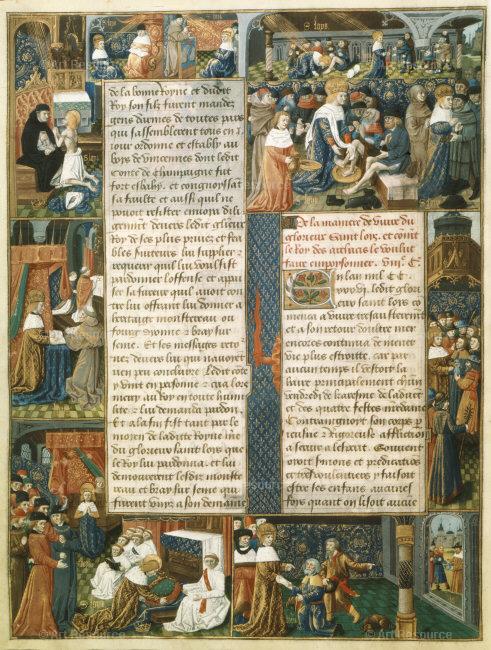 de la bonne royne et dudit
Roy son filz furent mandez
gens darmes de toutes pars
qui sassemblerent tous en i
iour ordonne et estably au
boys de vincennes dont ledit
Conte de champaigne fut
fort esbahy. et congnoissant
sa faulte et aussi quil ne
pouoit resister envoia dili
gemment devers ledit glorieux
Roy de ses plus privez et fea
bles serviteurs lui suplier
requerir quil lui voulsist
pardonner loffense et apai
ser sa fureur quil avoit con
tre lui offrant lui donner a
heritaige monstereau ou
fourg dyonne bray sur
seine. Et ses messages reto
nez devers lui qui navoient
rien peu conclurre. Ledit côte
y vint en personne
au Roy en toute humi
lite. lui demanda pardon.
Et a la fin fist tant par le
moyen de ladite Royne
du glorieux saint loys que
le Roy lui pardonna. et lui
demourerent lesdiz monste
reau et bray sur seine qui
furent unyz a son demaine
De la maniere de vivre du
glorieux Saint Loys. et comēt
le Roy des arsacis le voulut
faire empoysonner.
En lan mil CC
ledit glori
eux saint loys co
menca a vivre tresausterement
et a son retour doultre mer
encores continua de mener
vie plus estroitte. car par
aucun temps il vestoit la
haire principalement chūn
vendredi de karesme de ladvēt
et des quatre festes nre dame
Contraingnoit son corps p
ieusne Rigoreuse affliction
a servir a lesperit. Souvent
oioit sermons et predicatiōs
et tresvoulentiers y faisoit
estre ses enfans aucunes
fois quant on lisoit aucune
Art Resource
Art Resource